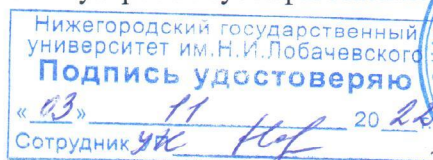 Нижегородский государственный
университет им.Н.И.Лобачевского
Подпись удостоверяю
«03» 11 2022
Сотрудник УК